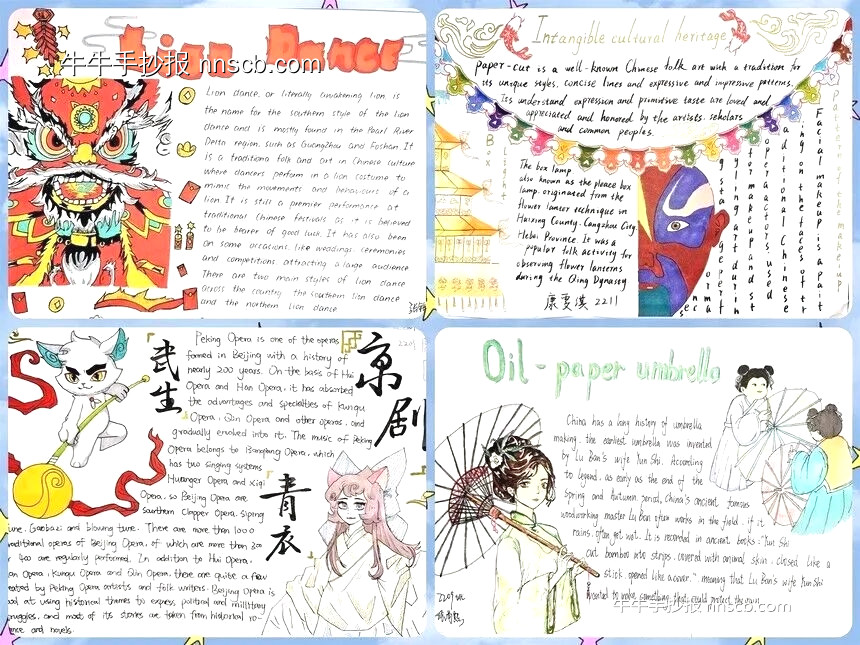 牛牛手抄报 nnscb.com
Lion Dance
Lion dance, or literally awakening lion, is
the name for the southern style of the lion
dance and is mostly found in the Pearl River
Derta region. Such as Guangzhou and Foshan. It
is a traditiona folk and art in Chinese culture
where dancers perform in a lion costume to
mimic the movements and behaviours of a
lion. It is still a premier performance at
traditional Chinese festivals as it is believed
to be bearer of good luck. It has also been
on some occasions, like weddings, ceremonies
and competitions attracting a large audience
There are two main styles of lion dance
across the country, the southern lion dance
and the northern lion dance
Intangible cultural heritage
Paper-cut is a well-known Chinese folk art with a tradition for
its unique styles, concise lines and expressive and impressive patterns.
Its understand expression and primitive taste are loved and
appreciated and honored by the artists, scholars
and common peoples.
Box Light
The box lamp,
also known as the pleace box
lamp, originated from the
flower lantor technique in
Huxing County, Cangzhou City,
Hebei Province. It was a
popular folk activity for
observing flower lanterns
during the Qing Dynasty
康雯淇 2211
Facial makeup is a pait
ing on the faces of tr
aditional Chinese
opera actors, used
武生
京剧
青衣
Peking Opera is one of the operas
formed in Beijing with a history of
nearly 200 years. On the basis of Hui
Opera and Han Opera, it has absorbed
the advantages and specialties of kunqu
Opera, Qin Opera and other operas, and
gradually evolved into it. The music of Peking
Opera belongs to Bangfang Opera, which
has two singing systems
Huanger Opera and Xiqi
Opera, so Beijing Opera are
southern Clapper Opera, Siping
tune, Gaobazi and blowing tune. There are more than 1000
traditional operas of Beijing Opera, of which are more than 300
or 400 are regularly performed. In addition to Hui Opera,
Han Opera, Kunqu Opera and Qin Opera, there are quite a few
created by Peking Opera artists and folk writers. Beijing Opera is
good at using historical themes to express political and military
struggles, and most of its stories are taken from historical ro-
mance and novels.
Oil-paper umbrella
China has a long history of umbrella
making. the earliest umbrella was invented
by Lu Ban's wife Yun Shi. According
to legend, as early as the end of the
Spring and Autumn period, China's ancient famous
woodworking master Lu Ban often works in the field, if it
rains, often get wet. It is recorded in ancient books: "Yun Shi
cut bamboo into strips, covered with animal skin, closed like a
stick, opened like a cover.", meaning that Lu Ban's wife Yun Shi
wanted to make something that could protect the rain.
牛牛手抄报 nnscb.com